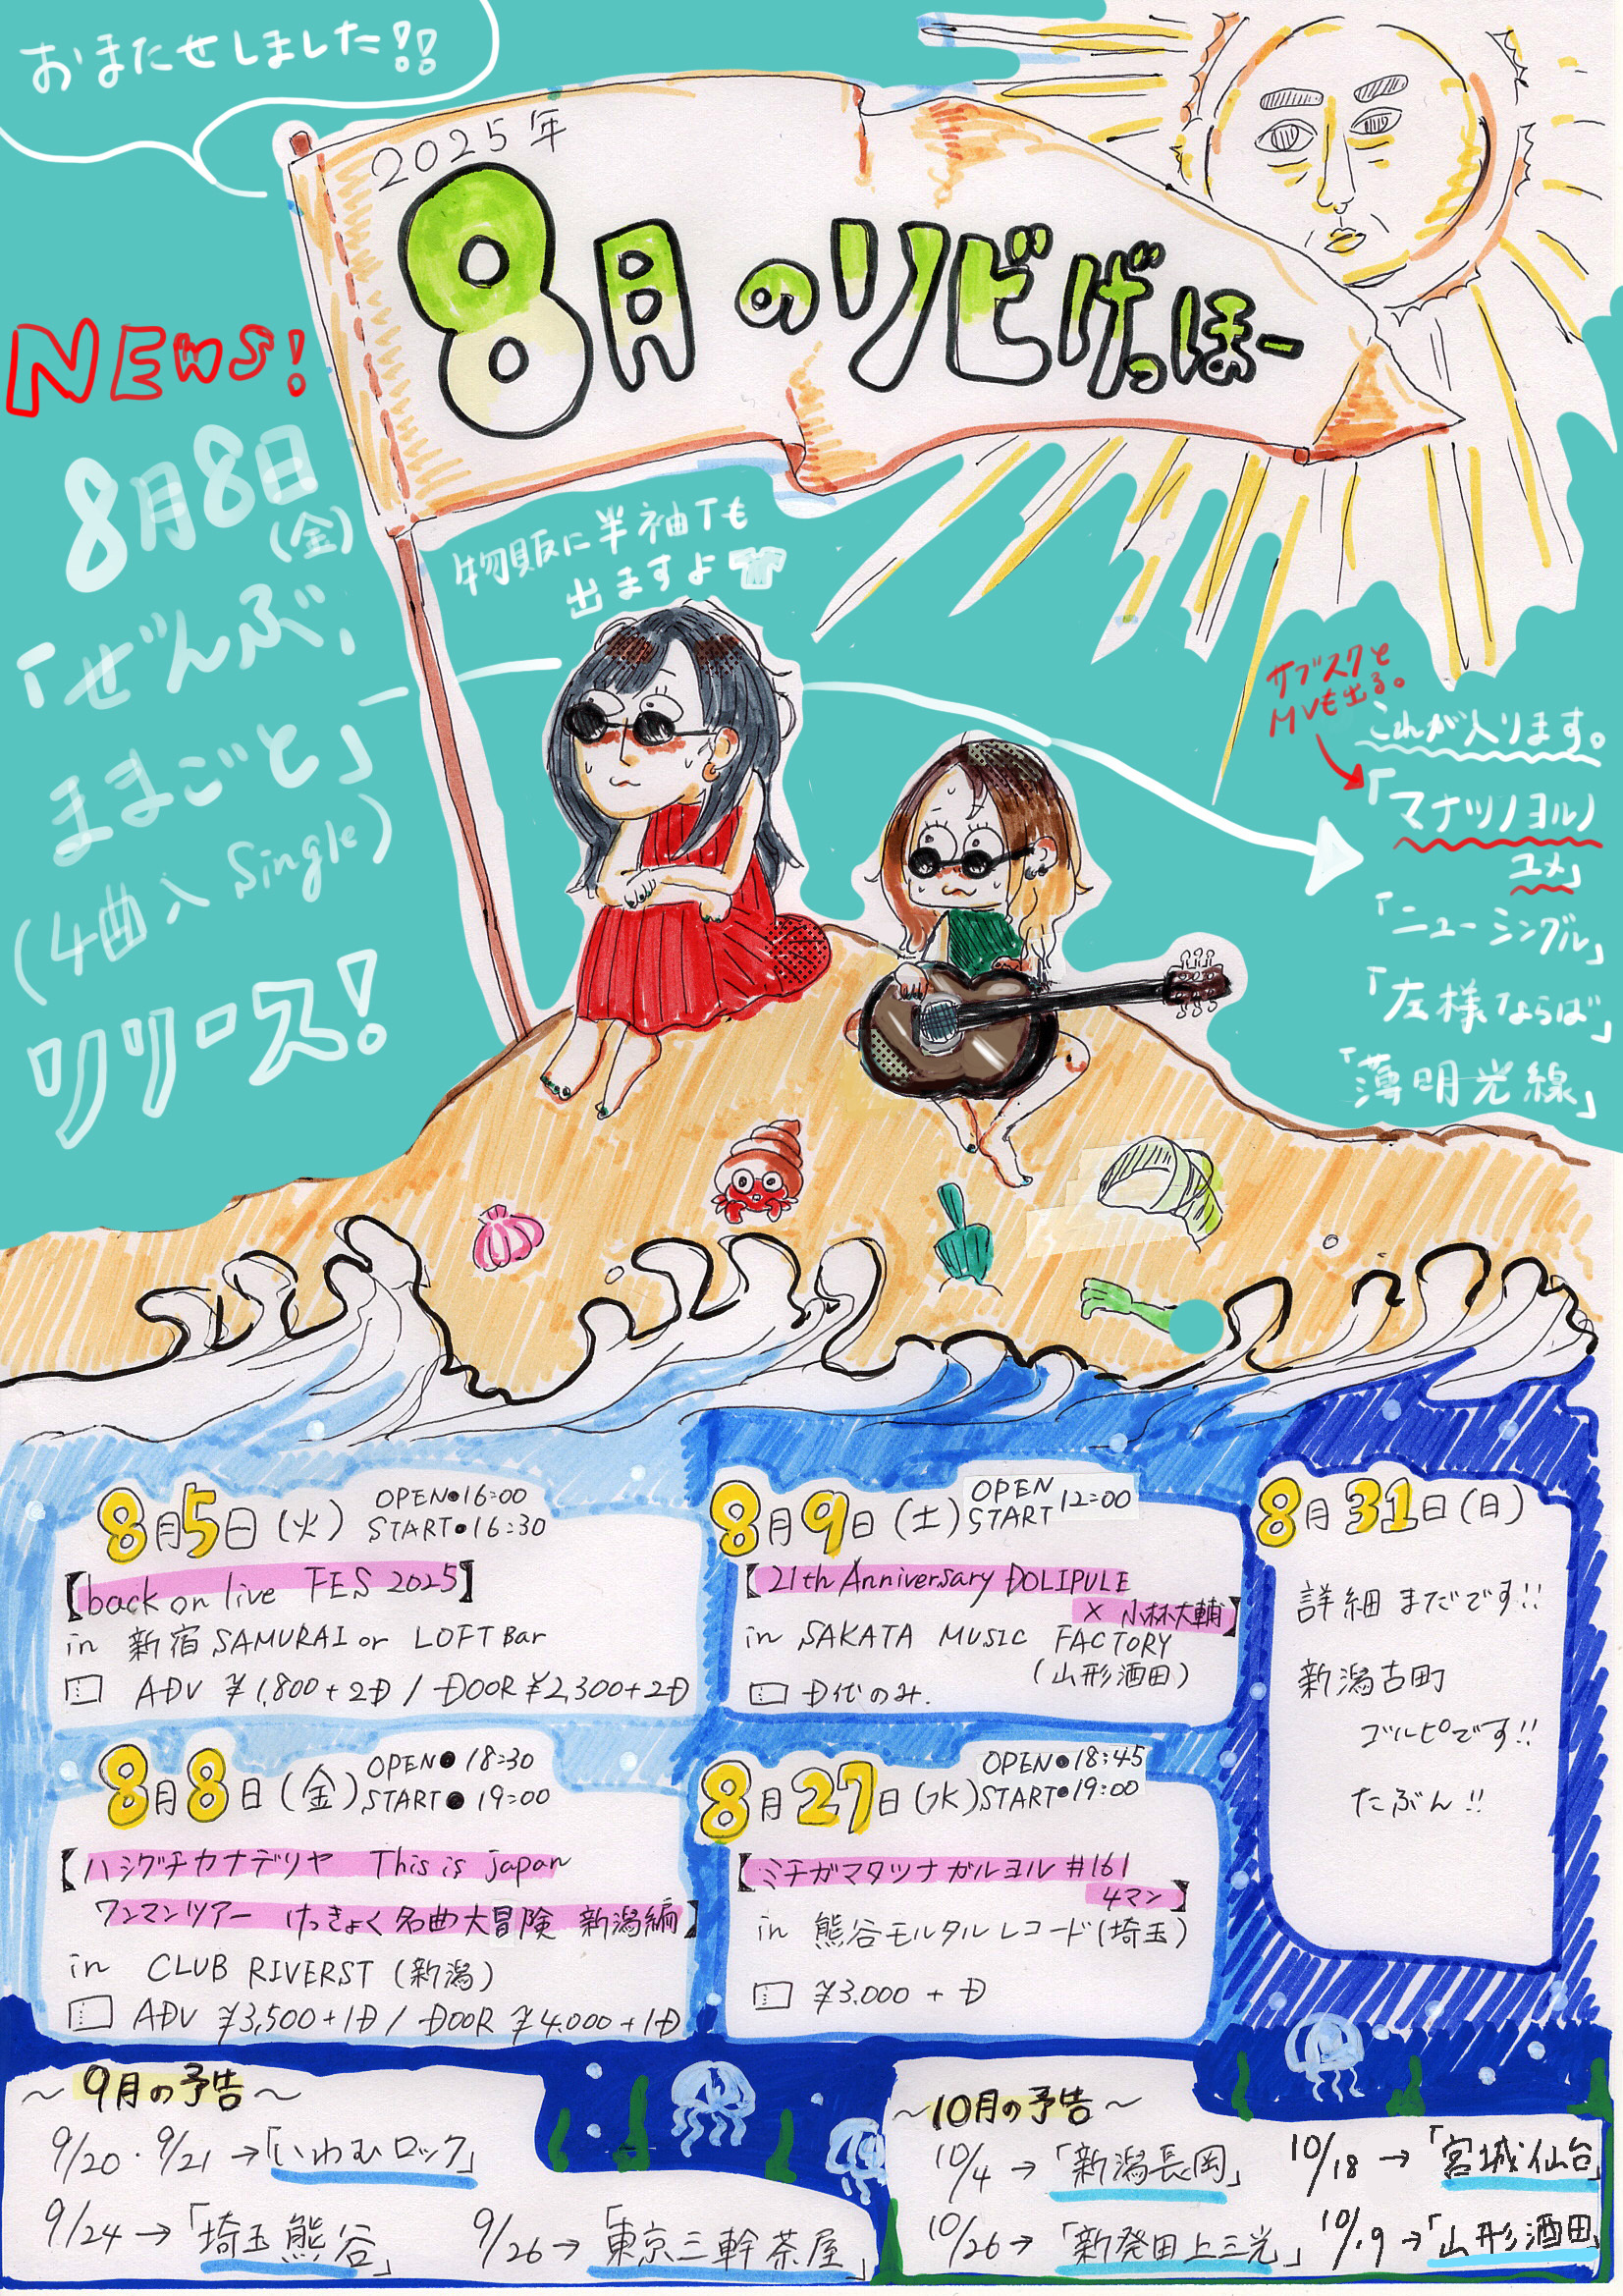 おまたせしました!!
2025年
8月のリビげっほー
NEWS!
8月8日
(金)
「ぜんぶ、
ままごと」
(4曲入Single)
リリース!
物販に半袖Tも
出ますよ
サブスクと
MVも出る。
これが入ります。
「マナツノヨルノ
ユメ」
「ニューシングル」
「左様ならば」
「薄明光線」
8月5日(火) OPEN・16:00
START・16:30
【back on live FES 2025】
in 新宿SAMURAI or LOFT Bar
ADV ¥1,800+2D / DOOR ¥2,300+2D
8月8日(金) OPEN・18:30
START・19:00
【ハシグチカナデリヤ This is japan
ワンマンツアー けっきょく名曲大冒険 新潟編】
in CLUB RIVERST (新潟)
ADV ¥3,500+1D / DOOR ¥4,000+1D
8月9日(土) OPEN
START 12:00
【21th Anniversary DOLIPULE
× 小林大輔】
in SAKATA MUSIC FACTORY
(山形酒田)
D代のみ.
8月27日(水) OPEN・18:45
START・19:00
【ミチガマタツナガルヨル #161
4マン】
in 熊谷モルタルレコード(埼玉)
¥3,000 + D
8月31日(日)
詳細まだです!!
新潟古町
ゴルピです!!
たぶん!!
～9月の予告～
9/20・9/21→「いわむロック」
9/24→「埼玉熊谷」
9/26→「東京三軒茶屋」
～10月の予告～
10/4→「新潟長岡」
10/18→「宮城仙台」
10/26→「新発田上三光」
10/19→「山形酒田」